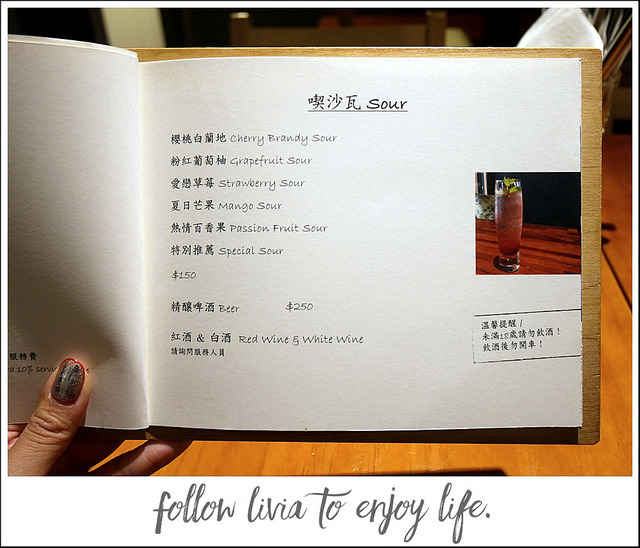 喫沙瓦 Sour
櫻桃白蘭地 Cherry Brandy Sour
粉紅葡萄柚 Grapefruit Sour
愛戀草莓 Strawberry Sour
夏日芒果 Mango Sour
熱情百香果 Passion Fruit Sour
特別推薦 Special Sour
$150
精釀啤酒 Beer $250
紅酒 & 白酒 Red Wine & White Wine
請詢問服務人員
溫馨提醒 /
未滿18歲請勿飲酒！
飲酒後勿開車！
服務費
10%
follow livia to enjoy life.